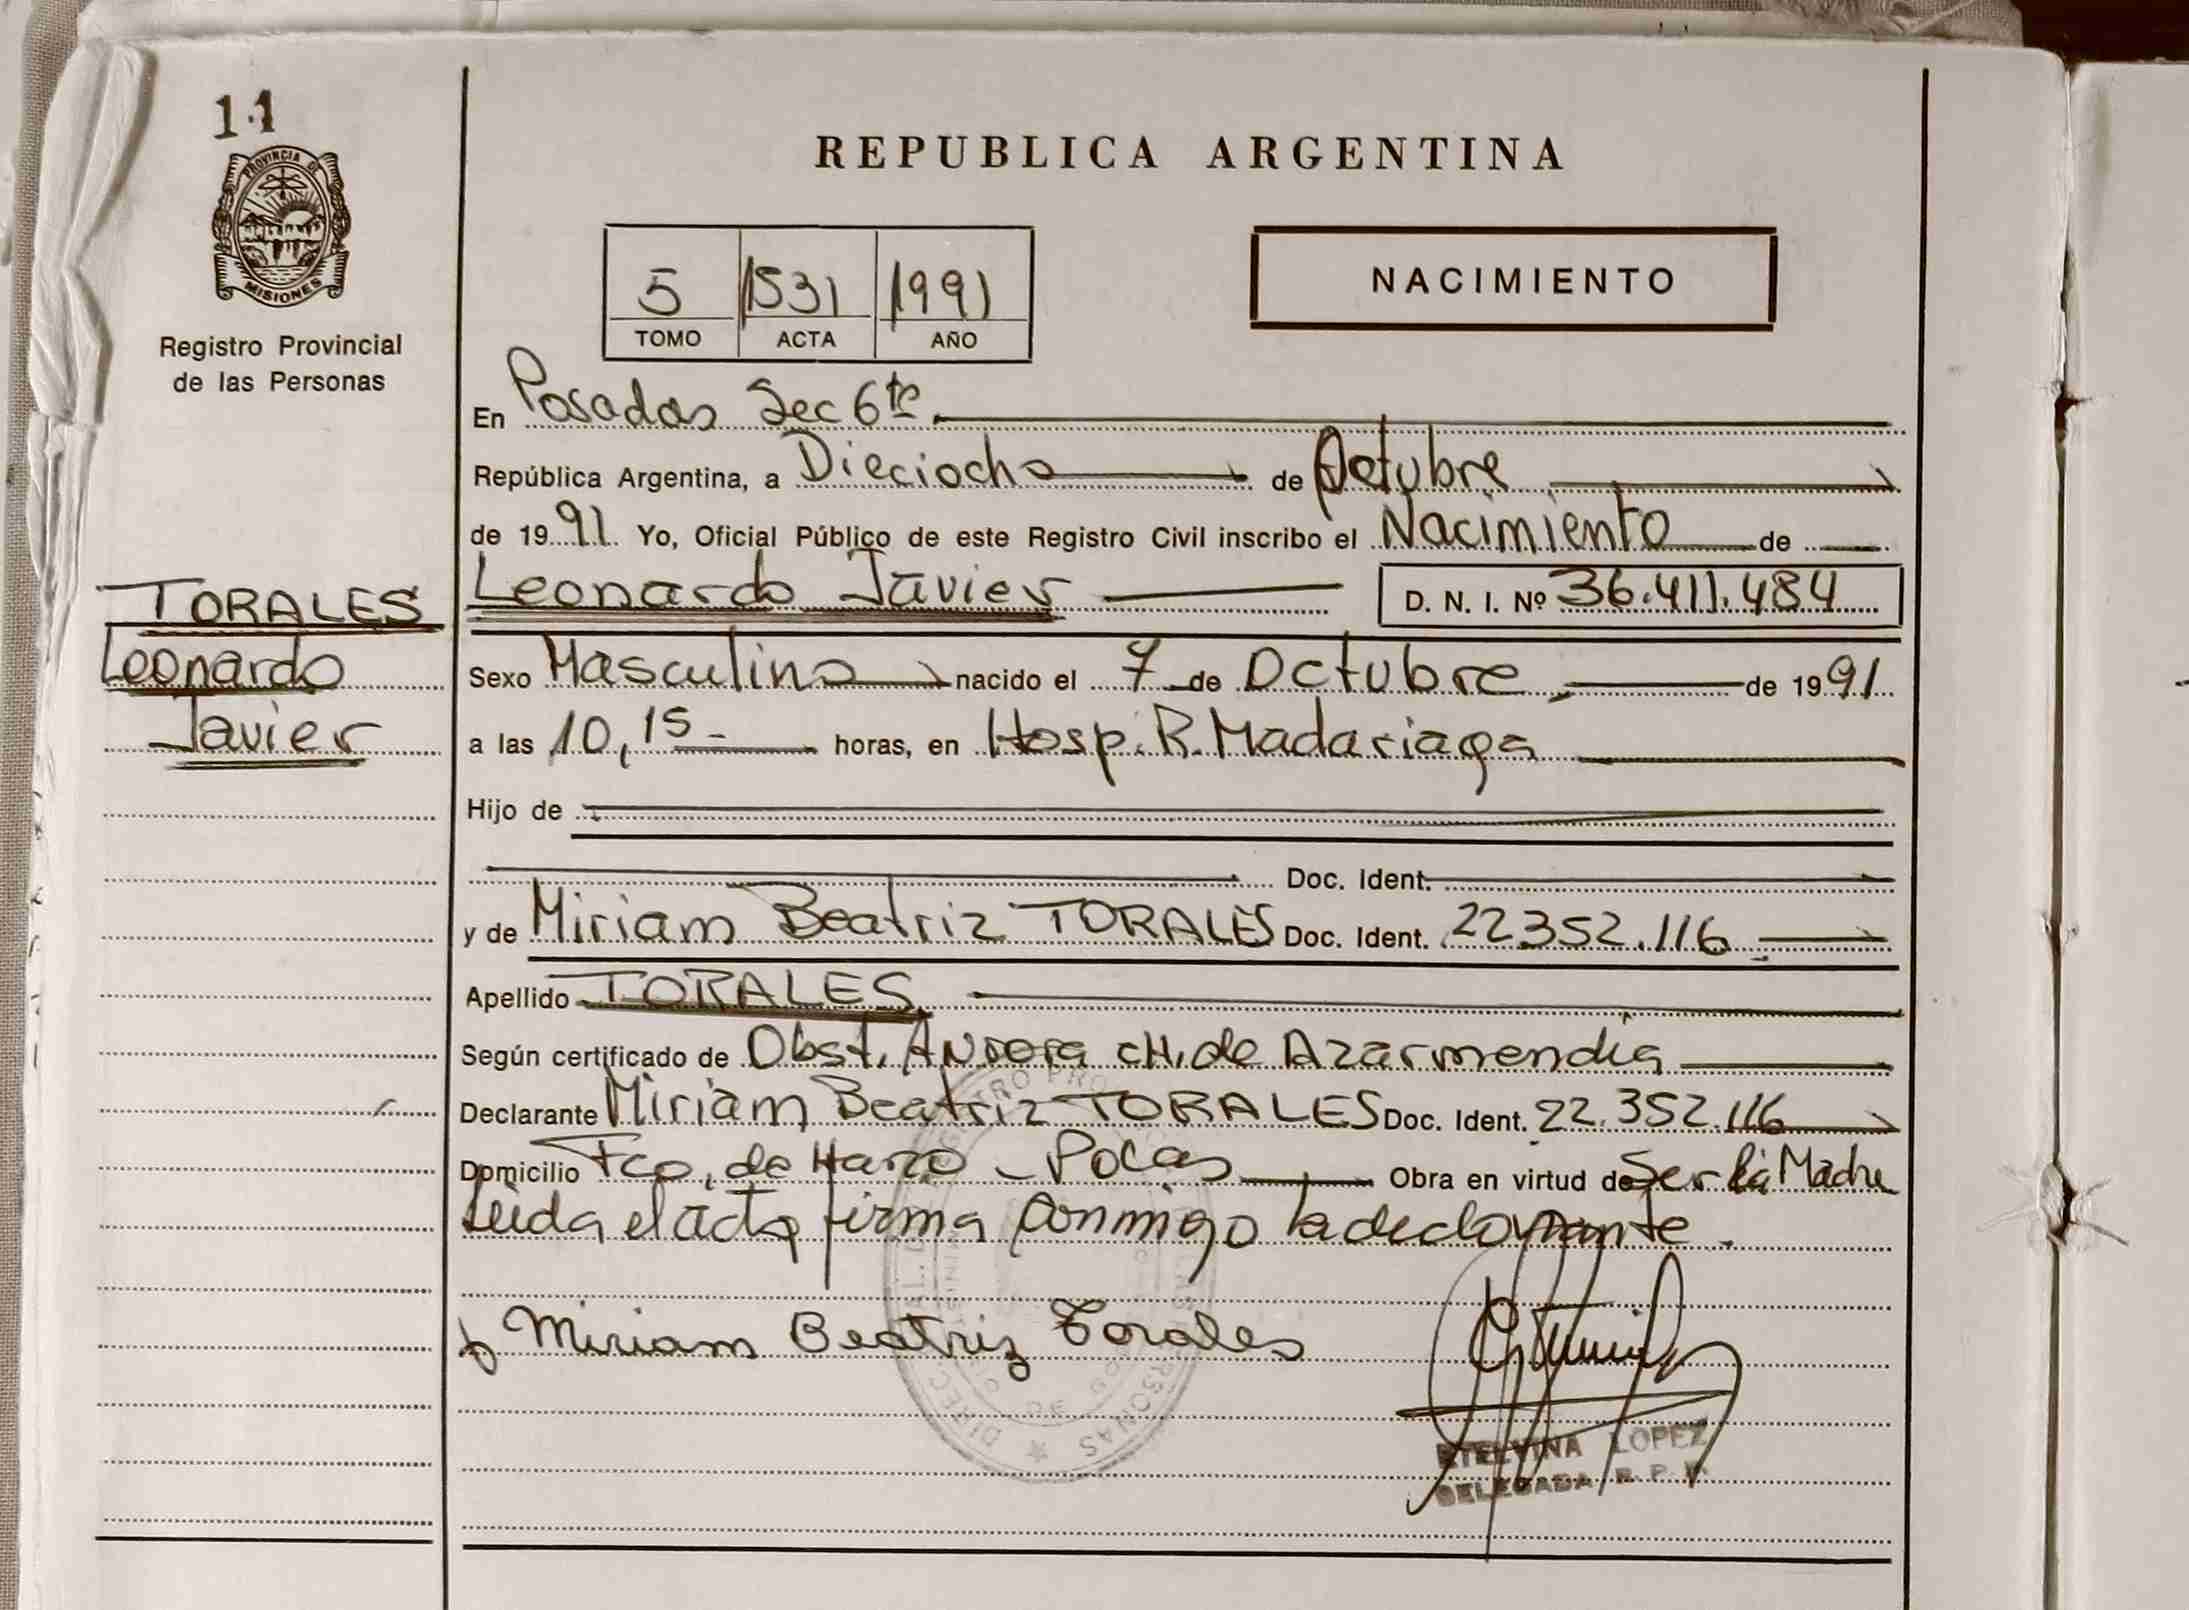 11
PROVINCIA DE
MISIONES
Registro Provincial
de las Personas
REPUBLICA ARGENTINA
5 1531 1991
TOMO ACTA AÑO
NACIMIENTO
En Posadas Sec 6ta
República Argentina, a Dieciocho de Octubre
de 1991 Yo, Oficial Público de este Registro Civil inscribo el Nacimiento de
TORALES
Leonardo
Javier
Leonardo Javier D. N. I. Nº 36.411.484
Sexo Masculino nacido el 7 de Octubre de 1991
a las 10,15 horas, en Hosp. R. Madariaga
Hijo de
Doc. Ident.
y de Miriam Beatriz TORALES Doc. Ident. 22352.116
Apellido TORALES
Según certificado de Obst. CH. de Azarmendia
Declarante Miriam Beatriz TORALES Doc. Ident. 22.352.116
Domicilio Fco. de Haro - Pdas Obra en virtud de Ser la Madre
Leida el acta firma conmigo la declarante.
Miriam Beatriz Torales
ETELVINA LOPEZ
DELEGADA R. P. P.